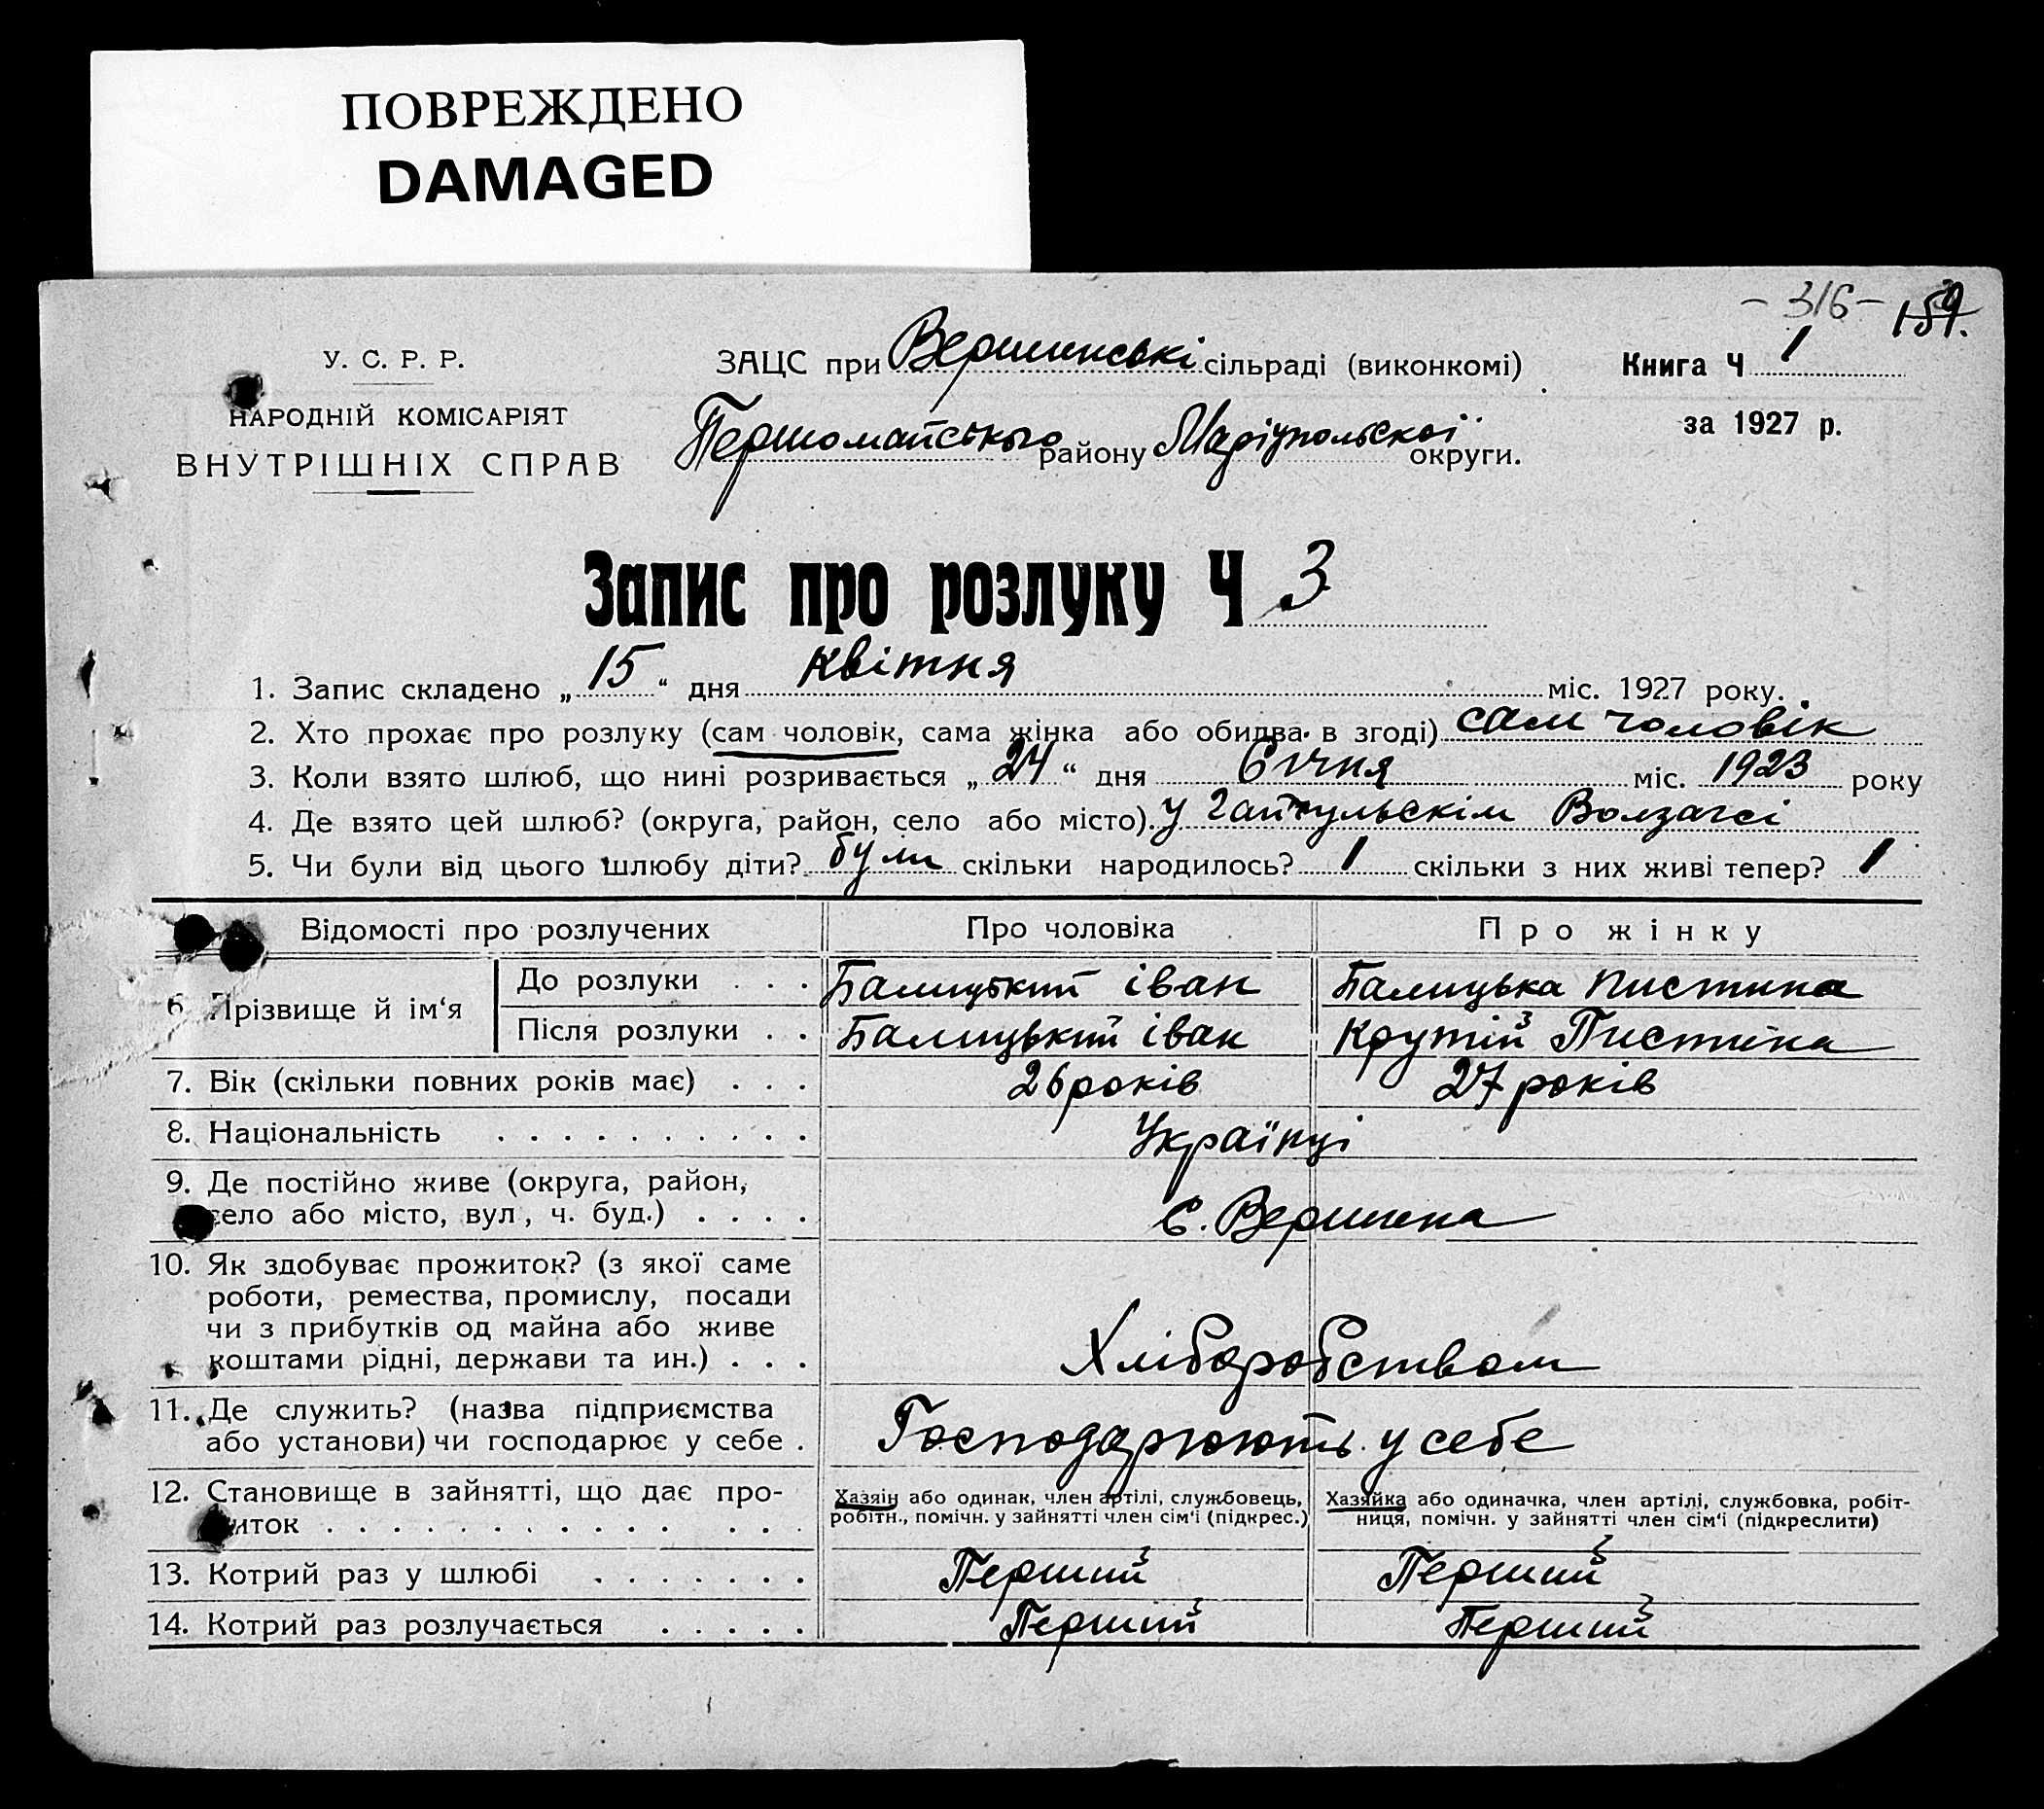 ПОВРЕЖДЕНО
DAMAGED
- 316 -
159.
У. С. Р. Р.
НАРОДНІЙ КОМІСАРІЯТ
ВНУТРІШНІХ СПРАВ
ЗАЦС при Вершинські сільраді (виконкомі)
Першомайського району Маріупольскої округи.
Книга Ч 1
за 1927 р.
Запис про розлуку Ч 3
1. Запис складено „ 15 “ дня квітня міс. 1927 року.
2. Хто прохає про розлуку (сам чоловік, сама жінка або обидва в згоді) сам чоловік
3. Коли взято шлюб, що нині розривається „ 24 “ дня Січня міс. 1923 року
4. Де взято цей шлюб? (округа, район, село або місто). у
5. Чи були від цього шлюбу діти? були скільки народилось? 1 скільки з них живі тепер? 1
Відомості про розлучених Про чоловіка Про жінку
6. Прізвище й ім‘я
До розлуки . . . Балицький іван Балицька Пистина
Після розлуки . . Балицький іван Крутій Пистина
7. Вік (скільки повних років має) . . . 26 років 27 років
8. Національність . . . . . . . . . . . Українці
9. Де постійно живе (округа, район,
село або місто, вул, ч. буд.) . . . . с. Вершина
10. Як здобуває прожиток? (з якої саме
роботи, ремества, промислу, посади
чи з прибутків од майна або живе
коштами рідні, держави та ин.) . . . Хліборобством
11. Де служить? (назва підприємства
або установи) чи господарює у себе . Господарюють у себе
12. Становище в зайнятті, що дає про-
житок . . . . . . . . . . . . .
Хазяін або одинак, член артілі, службовець,
робітн., помічн. у зайнятті член сім‘і (підкрес.)
Хазяйка або одиначка, член артілі, службовка, робіт-
ниця, помічн. у зайнятті член сім‘і (підкреслити)
13. Котрий раз у шлюбі . . . . . . . Перший Перший
14. Котрий раз розлучається . . . . . Перший Перший